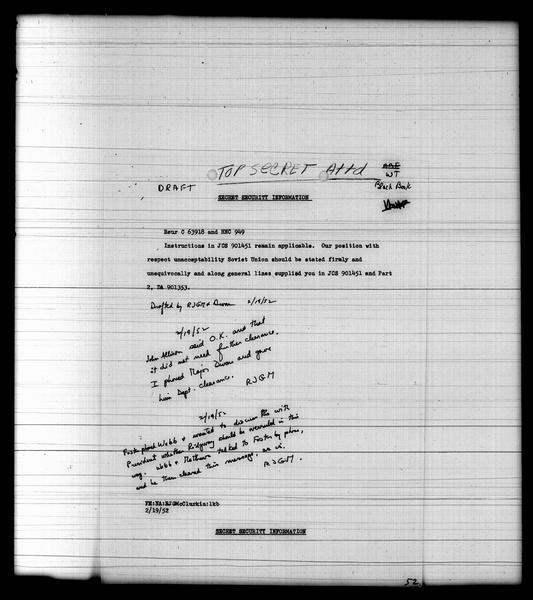 TOP SECRET Attd
WT
DRAFT
Black Book
SECRET SECURITY INFORMATION
Reur C 63918 and HNC 949
Instructions in JCS 901451 remain applicable. Our position with
respect unacceptability Soviet Union should be stated firmly and
unequivocally and along general lines supplied you in JCS 901451 and Part
2, DA 901353.
Drafted by RJGM & 2/19/52
2/19/52
John Allison said O.K. and that
it did not need further clearance.
I phoned Major and gave
him Dept. clearance.
RJGM
2/19/52
phoned Webb & wanted to discuss this with
President whether Ridgway should be overruled in this
way. Webb & Matthews talked to by phone,
and he then cleared this message, as is.
RJGM.
FE:NA:RJGMcClurkin:lkb
2/19/52
SECRET SECURITY INFORMATION
52